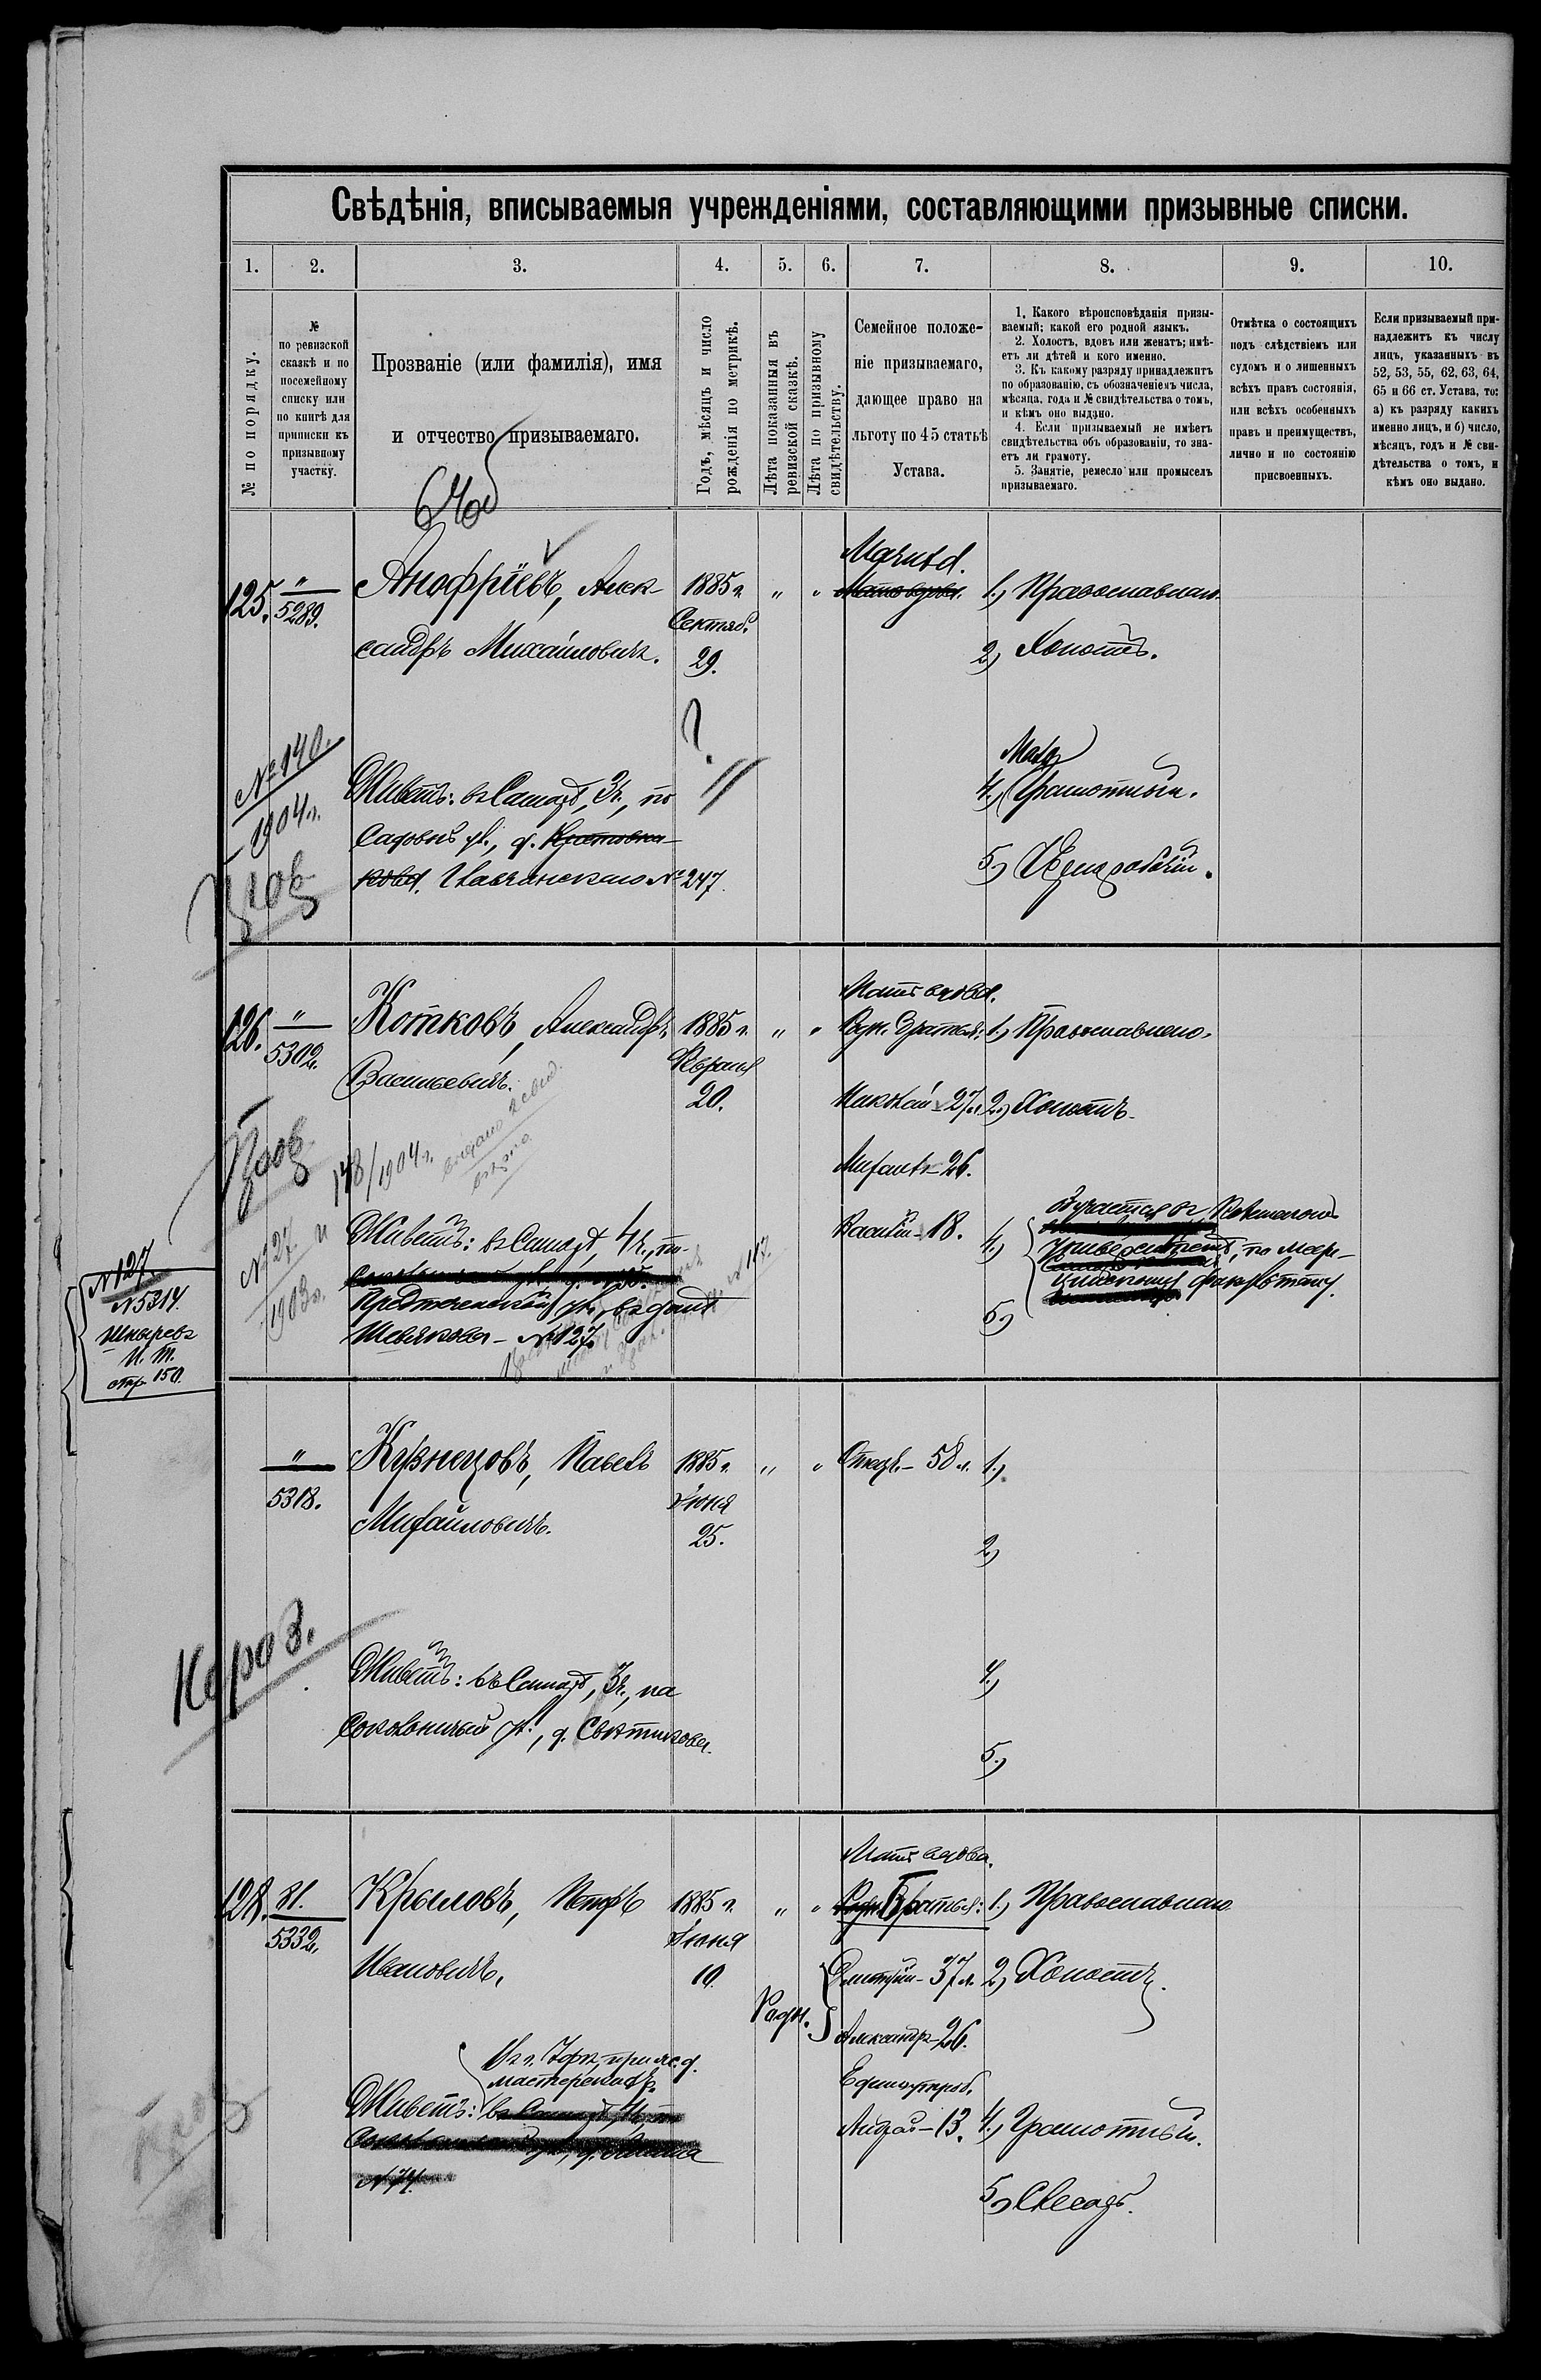 Свѣдѣнія, вписываемыя учрежденіями, составляющими призывные списки.
1. 2. 3. 4. 5. 6. 7. 8. 9. 10.
№ по порядку.
№
по ревизской
сказкѣ и по
посемейному
списку или
по книгѣ для
приписки къ
призывному
участку.
Прозваніе (или фамилія), имя
и отчество призываемаго.
Годъ, мѣсяцъ и число
рожденія по метрикѣ.
Лѣта показанныя въ
ревизской сказкѣ.
Лѣта по призывному
свидѣтельству.
Семейное положе-
ніе призываемаго,
дающее право на
льготу по 45 статьѣ
Устава.
1. Какого вѣроисповѣданія призы-
ваемый; какой его родной языкъ.
2. Холостъ, вдовъ или женатъ; имѣ-
етъ ли дѣтей и кого именно.
3. Къ какому разряду принадлежитъ
по образованію, съ обозначеніемъ числа,
мѣсяца, года и № свидѣтельства о томъ,
и кѣмъ оно выдано.
4. Если призываемый не имѣетъ
свидѣтельства объ образованіи, то зна-
етъ ли грамоту.
5. Занятіе, ремесло или промыселъ
призываемаго.
Отмѣтка о состоящихъ
подъ слѣдствіемъ или
судомъ и о лишенныхъ
всѣхъ правъ состоянія,
или всѣхъ особенныхъ
правъ и преимуществъ,
лично и по состоянію
присвоенныхъ.
Если призываемый при-
надлежитъ къ числу
лицъ, указанныхъ въ
52, 53, 55, 62, 63, 64,
65 и 66 ст. Устава, то:
а) къ разряду какихъ
именно лицъ, и б) число,
мѣсяцъ, годъ и № сви-
дѣтельства о томъ, и
кѣмъ оно выдано.
125. " 5289. Анофріевъ, Алек- 1885 г. " " Мать вдова. 1.) Православнаго.
сандръ Михайловичъ. Сентяб. 29. 2) Холостъ.
№ 140.
1904 г.
Живетъ: въ Самарѣ, 3 ч., по
Садовой ул., д.
№ 247.
Мало
4.) Грамотный.
5.) Чернорабочій.
126. " 5302. Котковъ, Александръ 1885 г. " "
Васильевичъ. 20.
Мать вдова.
Род. братья: 1.) Православнаго.
Николай - 27 л. 2.) Холостъ.
Михаилъ - 26.
Василій - 18. 4.)
148/1904 г.
№ 27 и
1903 г.
Живетъ: въ Самарѣ, 4 ч., по
Предтеченской ул., въ домѣ
Шевякова - № 127.
№ 147.
Университетѣ, по Меди-
цинскому факультету.
5)
№ 127
№ 5314.
Шкаревъ
И. Т.
стр. 150.
" 5318. Кузнецовъ, Павелъ 1885 г. " " Отецъ - 58 л. 1.)
Михайловичъ. Іюня 25. 2)
Живетъ: въ Самарѣ, 3 ч., на 4.)
Соколничьей ул., д. 5.)
128. 81. 5332. Крыловъ, Петръ 1885 г. " "
Ивановичъ. Іюня 10.
Мать вдова.
Братья: 1.) Православнаго
Родн. Дмитрій - 37 л. 2) Холостъ.
Александръ - 26.
Единоутроб.
Андрей - 13. 4.) Грамотный.
5) Слесарь.
Въ г. Уфѣ, при ж. д.
мастерскихъ.
Живетъ: въ Самарѣ, 4 ч., по